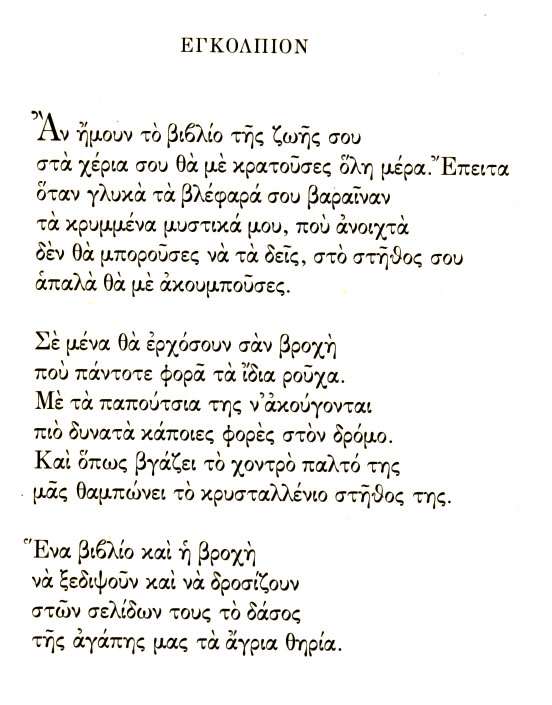 ΕΓΚΟΛΠΙΟΝ
Ἂν ἤμουν τὸ βιβλίο τῆς ζωῆς σου
στὰ χέρια σου θὰ μὲ κρατοῦσες ὅλη μέρα. Ἔπειτα
ὅταν γλυκὰ τὰ βλέφαρά σου βαραῖναν
τὰ κρυμμένα μυστικά μου, ποὺ ἀνοιχτὰ
δὲν θὰ μποροῦσες νὰ τὰ δεῖς, στὸ στῆθος σου
ἁπαλὰ θὰ μὲ ἀκουμποῦσες.
Σὲ μένα θὰ ἐρχόσουν σὰν βροχὴ
ποὺ πάντοτε φορᾶ τὰ ἴδια ροῦχα.
Μὲ τὰ παπούτσια της ν' ἀκούγονται
πιὸ δυνατὰ κάποιες φορὲς στὸν δρόμο.
Καὶ ὅπως βγάζει τὸ χοντρὸ παλτό της
μᾶς θαμπώνει τὸ κρυσταλλένιο στῆθος της.
Ἕνα βιβλίο καὶ ἡ βροχὴ
νὰ ξεδιψοῦν καὶ νὰ δροσίζουν
στῶν σελίδων τους τὸ δάσος
τῆς ἀγάπης μας τὰ ἄγρια θηρία.